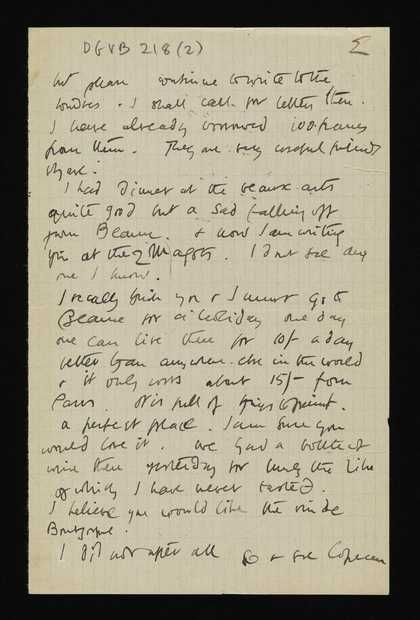 DGVB 218 (2)
2
but please continue to write to the
Londres. I shall call for letters there.
I have already borrowed 100 francs
from them. They are very useful friends
I had dinner at the beaux arts
quite good but a sad falling off
from Beaune. & now I am writing
you at the 2 Magots. I dont see any
one I know.
I really think you & I must go to
Beaune for a holiday one day
one can live there for 10/- a day
better than anywhere else in the world
& it only costs about 15/- from
Paris. It is full of things to paint.
a perfect place. I am sure you
would love it. We had a bottle of
wine there yesterday for lunch the like
of which I have never tasted.
I believe you would like the vin de
Bourgogne.
I did not after all go & see Copeau